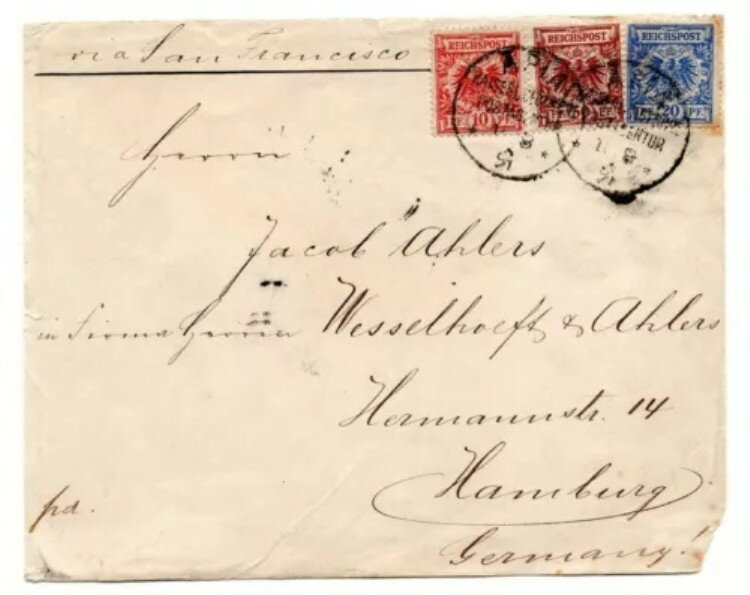 via San Francisco
REICHSPOST REICHSPOST REICHSPOST
10 PF 20 PF
Herrn
Jacob Ahlers
in Firma Herren Wesselhoeft & Ahlers
Hermannstr. 14
Hamburg
pd.
Germany!